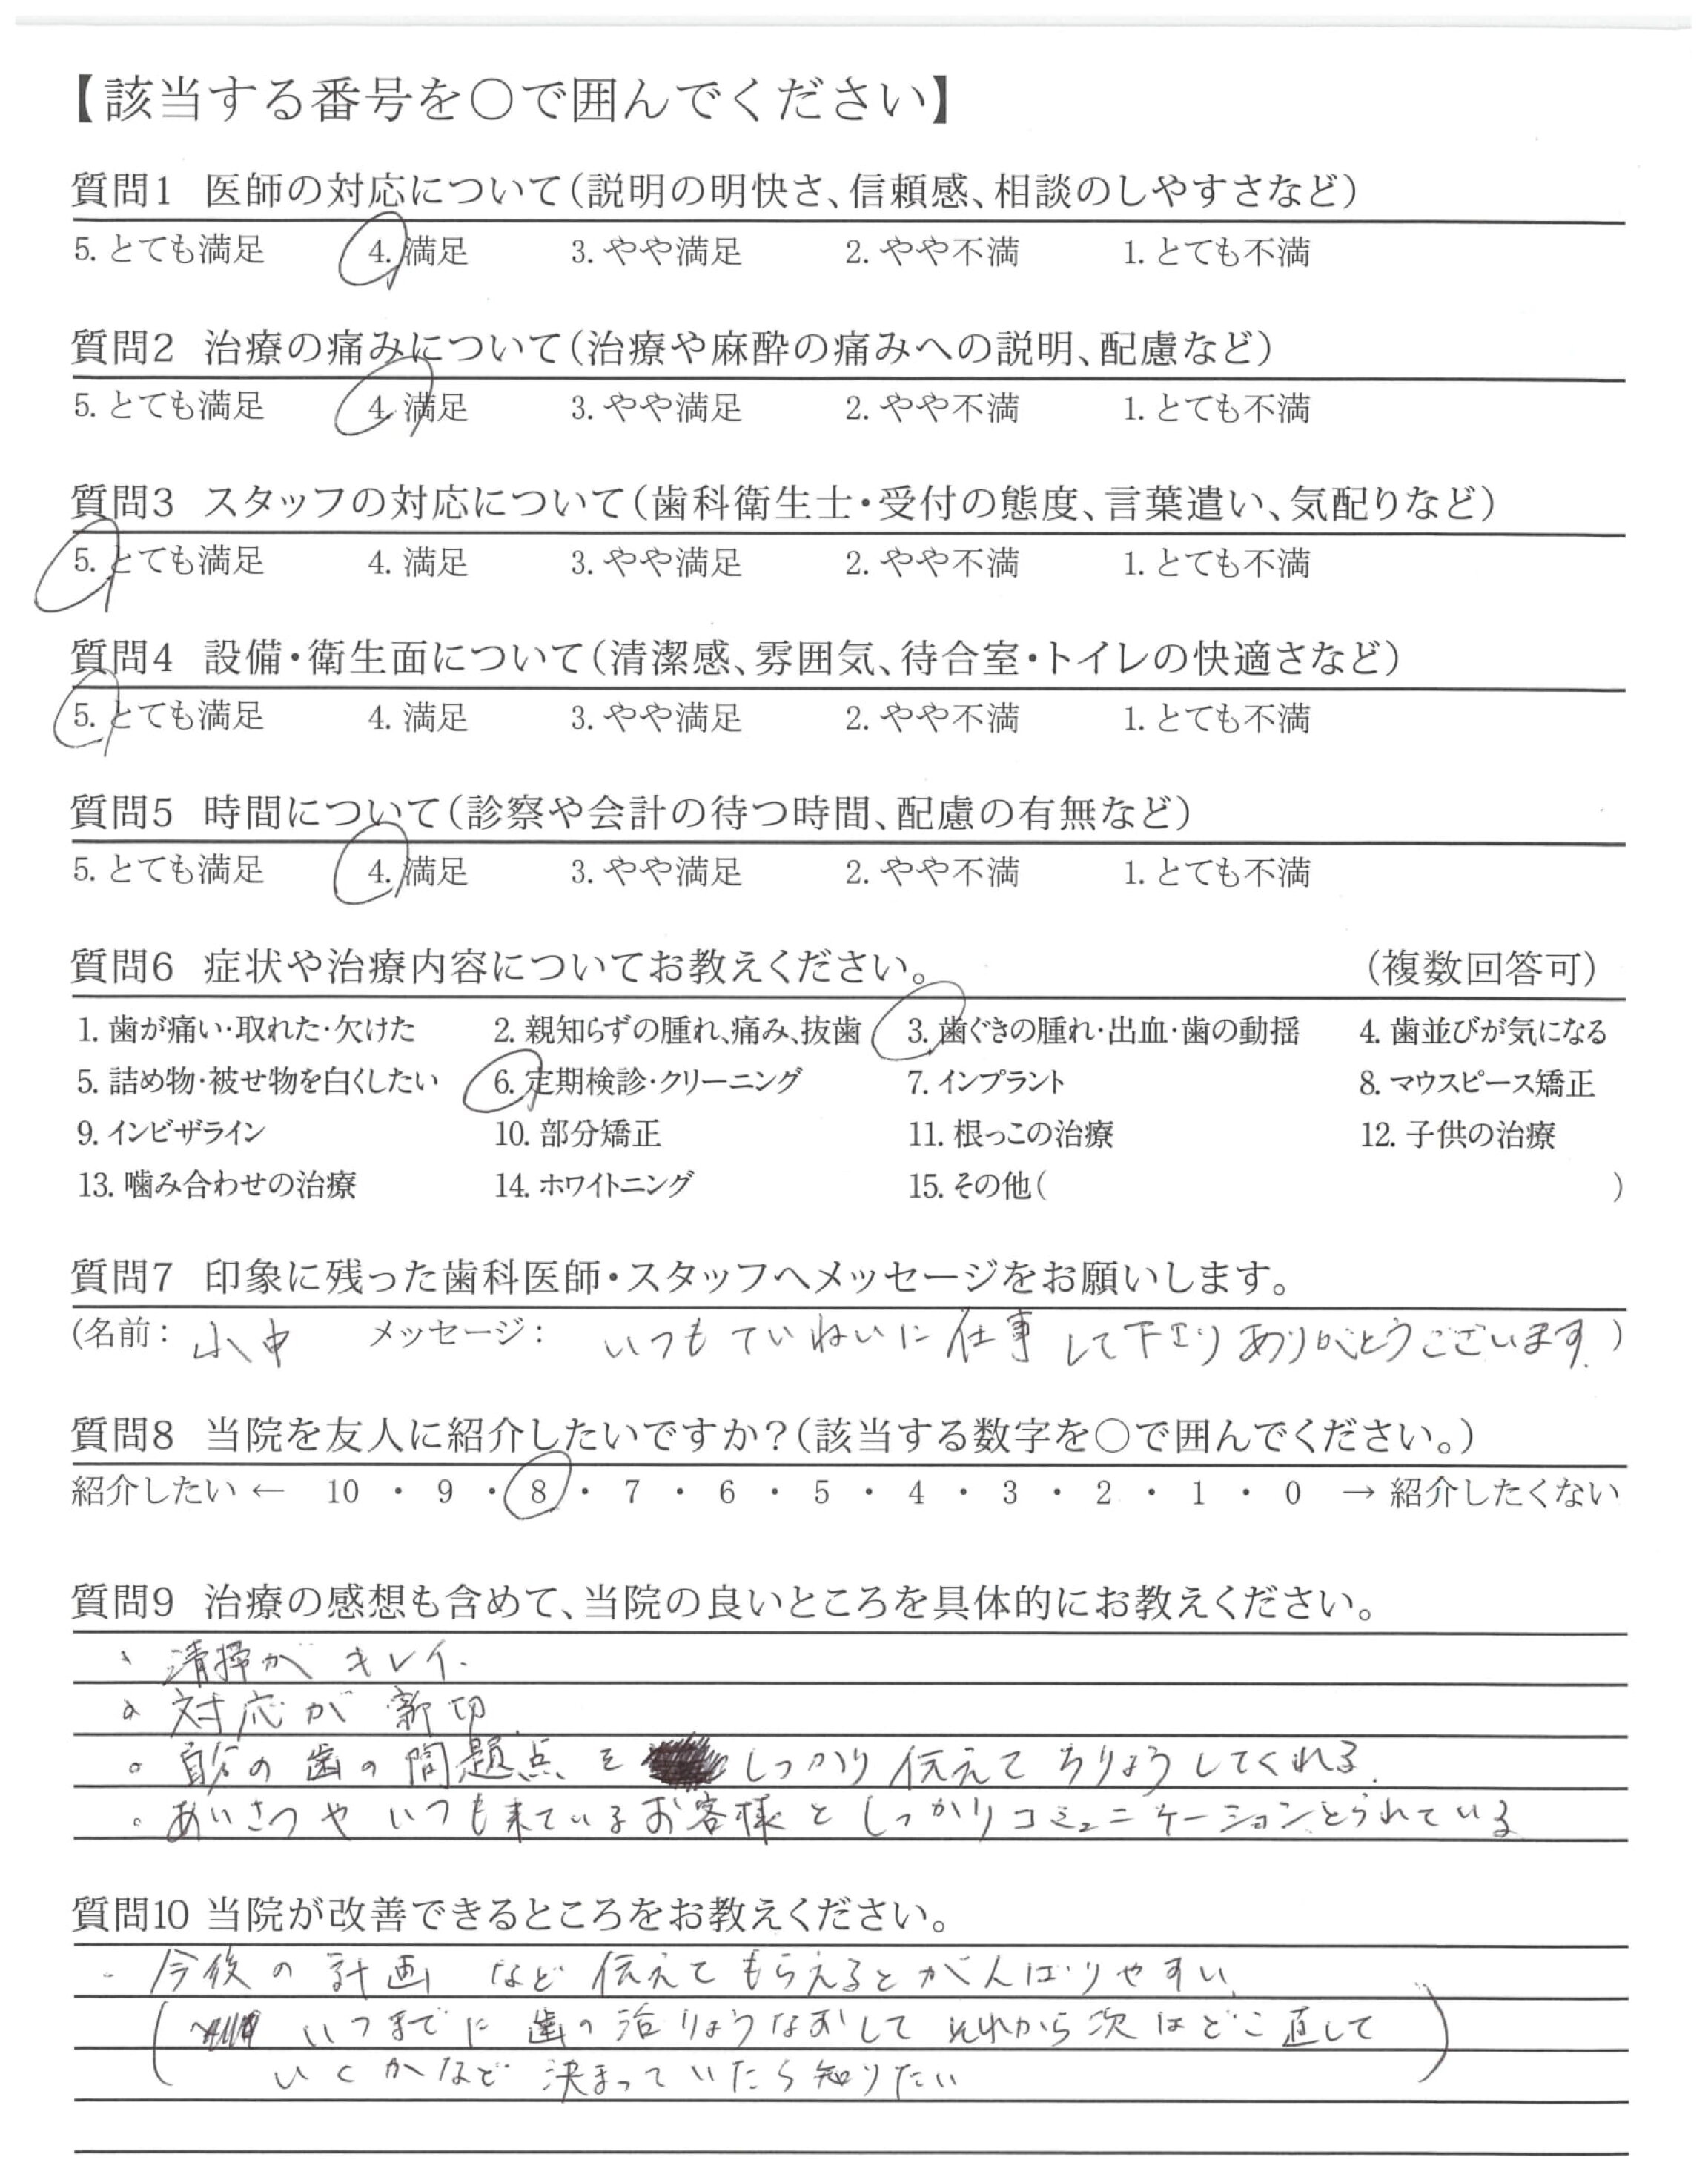 【該当する番号を○で囲んでください】
質問1 医師の対応について(説明の明快さ、信頼感、相談のしやすさなど)
5. とても満足 4. 満足 3. やや満足 2. やや不満 1. とても不満
質問2 治療の痛みについて(治療や麻酔の痛みへの説明、配慮など)
5. とても満足 4. 満足 3. やや満足 2. やや不満 1. とても不満
質問3 スタッフの対応について(歯科衛生士・受付の態度、言葉遣い、気配りなど)
5. とても満足 4. 満足 3. やや満足 2. やや不満 1. とても不満
質問4 設備・衛生面について(清潔感、雰囲気、待合室・トイレの快適さなど)
5. とても満足 4. 満足 3. やや満足 2. やや不満 1. とても不満
質問5 時間について(診察や会計の待つ時間、配慮の有無など)
5. とても満足 4. 満足 3. やや満足 2. やや不満 1. とても不満
質問6 症状や治療内容についてお教えください。 (複数回答可)
1. 歯が痛い・取れた・欠けた 2. 親知らずの腫れ、痛み、抜歯 3. 歯ぐきの腫れ・出血・歯の動揺 4. 歯並びが気になる
5. 詰め物・被せ物を白くしたい 6. 定期検診・クリーニング 7. インプラント 8. マウスピース矯正
9. インビザライン 10. 部分矯正 11. 根っこの治療 12. 子供の治療
13. 噛み合わせの治療 14. ホワイトニング 15. その他( )
質問7 印象に残った歯科医師・スタッフへメッセージをお願いします。
(名前: 小中 メッセージ: いつもていねいに仕事して下さりありがとうございます。)
質問8 当院を友人に紹介したいですか?(該当する数字を○で囲んでください。)
紹介したい ← 10 ・ 9 ・ 8 ・ 7 ・ 6 ・ 5 ・ 4 ・ 3 ・ 2 ・ 1 ・ 0 → 紹介したくない
質問9 治療の感想も含めて、当院の良いところを具体的にお教えください。
・清掃がキレイ.
・対応が親切
。自分の歯の問題点を しっかり伝えてちりょうしてくれる.
。あいさつやいつも来ているお客様としっかりコミュニケーションとられている
質問10 当院が改善できるところをお教えください。
・今後の計画 など伝えてもらえるとがんばりやすい
( いつまでに歯の治りょうなおしてそれから次はどこ直して
いくかなど決まっていたら知りたい )